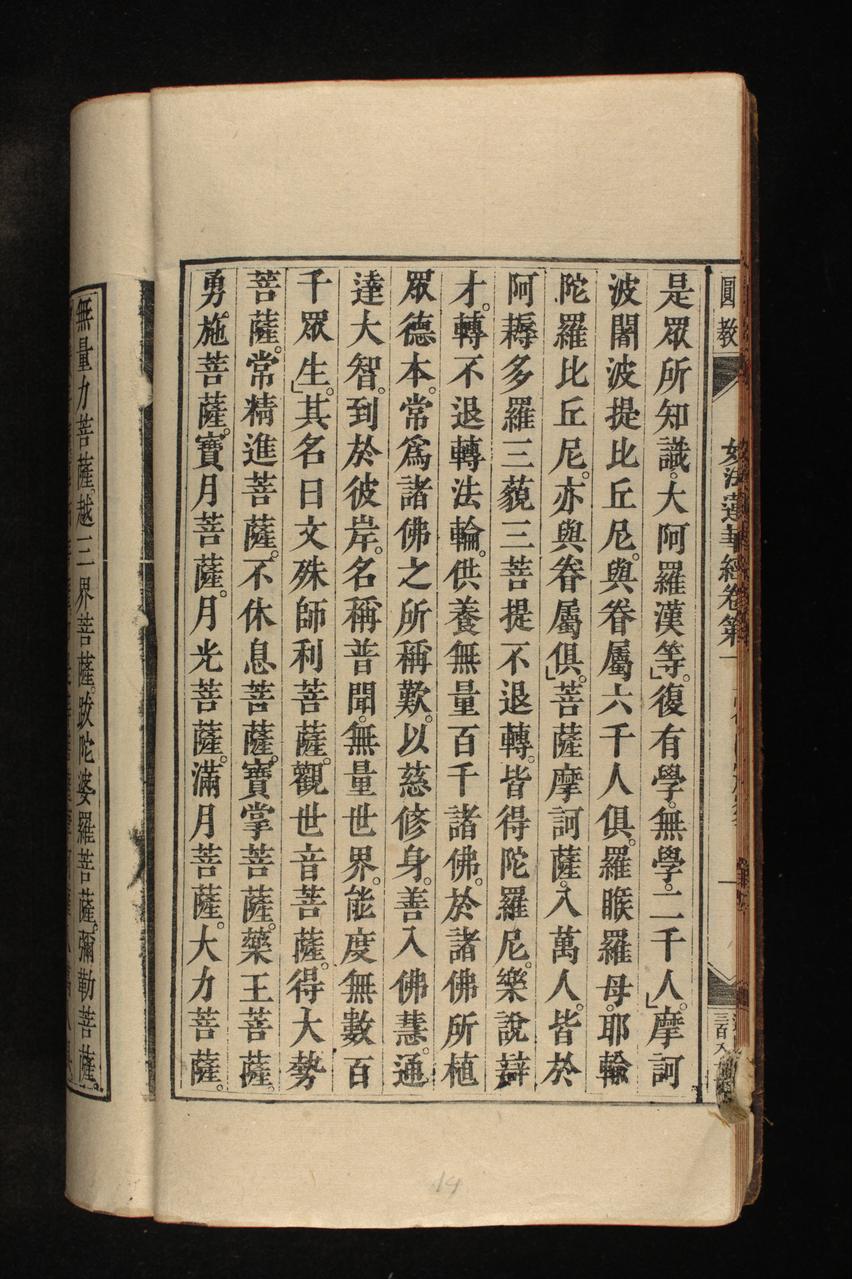 圓教
妙法蓮華經卷第一
三百
是眾所知識。大阿羅漢等。」復有學。無學。二千人。」摩訶
波闍波提比丘尼。與眷屬六千人俱。羅睺羅母。耶輸
陀羅比丘尼。亦與眷屬俱。」菩薩摩訶薩。八萬人。皆於
阿耨多羅三藐三菩提不退轉。皆得陀羅尼。樂說辯
才。轉不退轉法輪。供養無量百千諸佛。於諸佛所植
眾德本。常爲諸佛之所稱歎。以慈修身。善入佛慧。通
達大智。到於彼岸。名稱普聞。無量世界。能度無數百
千眾生。」其名曰文殊師利菩薩。觀世音菩薩。得大勢
菩薩。常精進菩薩。不休息菩薩。寶掌菩薩。藥王菩薩。
勇施菩薩。寶月菩薩。月光菩薩。滿月菩薩。大力菩薩。
無量力菩薩。越三界菩薩。跋陀婆羅菩薩。彌勒菩薩。
14